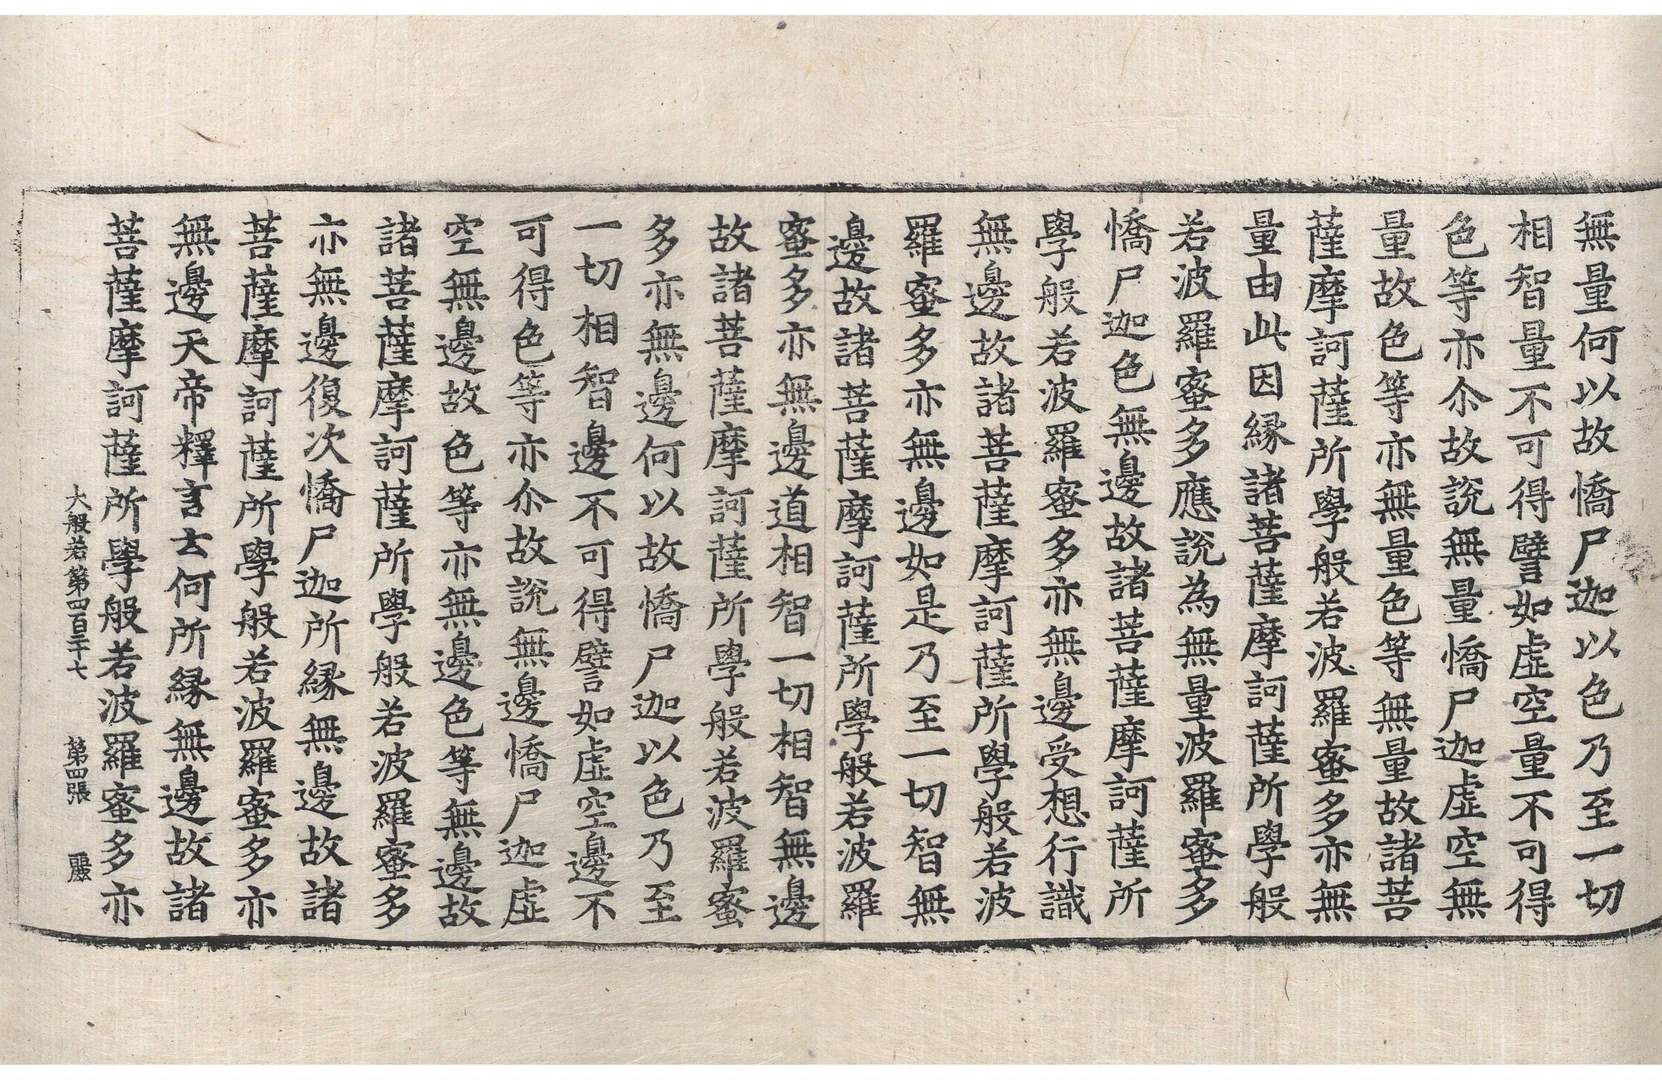 無量何以故憍尸迦以色乃至一切
相智量不可得譬如虛空量不可得
色等亦尒故說無量憍尸迦虛空無
量故色等亦無量色等無量故諸菩
薩摩訶薩所學般若波羅蜜多亦無
量由此因緣諸菩薩摩訶薩所學般
若波羅蜜多應說為無量波羅蜜多
憍尸迦色無邊故諸菩薩摩訶薩所
學般若波羅蜜多亦無邊受想行識
無邊故諸菩薩摩訶薩所學般若波
羅蜜多亦無邊如是乃至一切智無
邊故諸菩薩摩訶薩所學般若波羅
蜜多亦無邊道相智一切相智無邊
故諸菩薩摩訶薩所學般若波羅蜜
多亦無邊何以故憍尸迦以色乃至
一切相智邊不可得譬如虛空邊不
可得色等亦尒故說無邊憍尸迦虛
空無邊故色等亦無邊色等無邊故
諸菩薩摩訶薩所學般若波羅蜜多
亦無邊復次憍尸迦所緣無邊故諸
菩薩摩訶薩所學般若波羅蜜多亦
無邊天帝釋言云何所緣無邊故諸
菩薩摩訶薩所學般若波羅蜜多亦
大般若第四百二十七 第四張